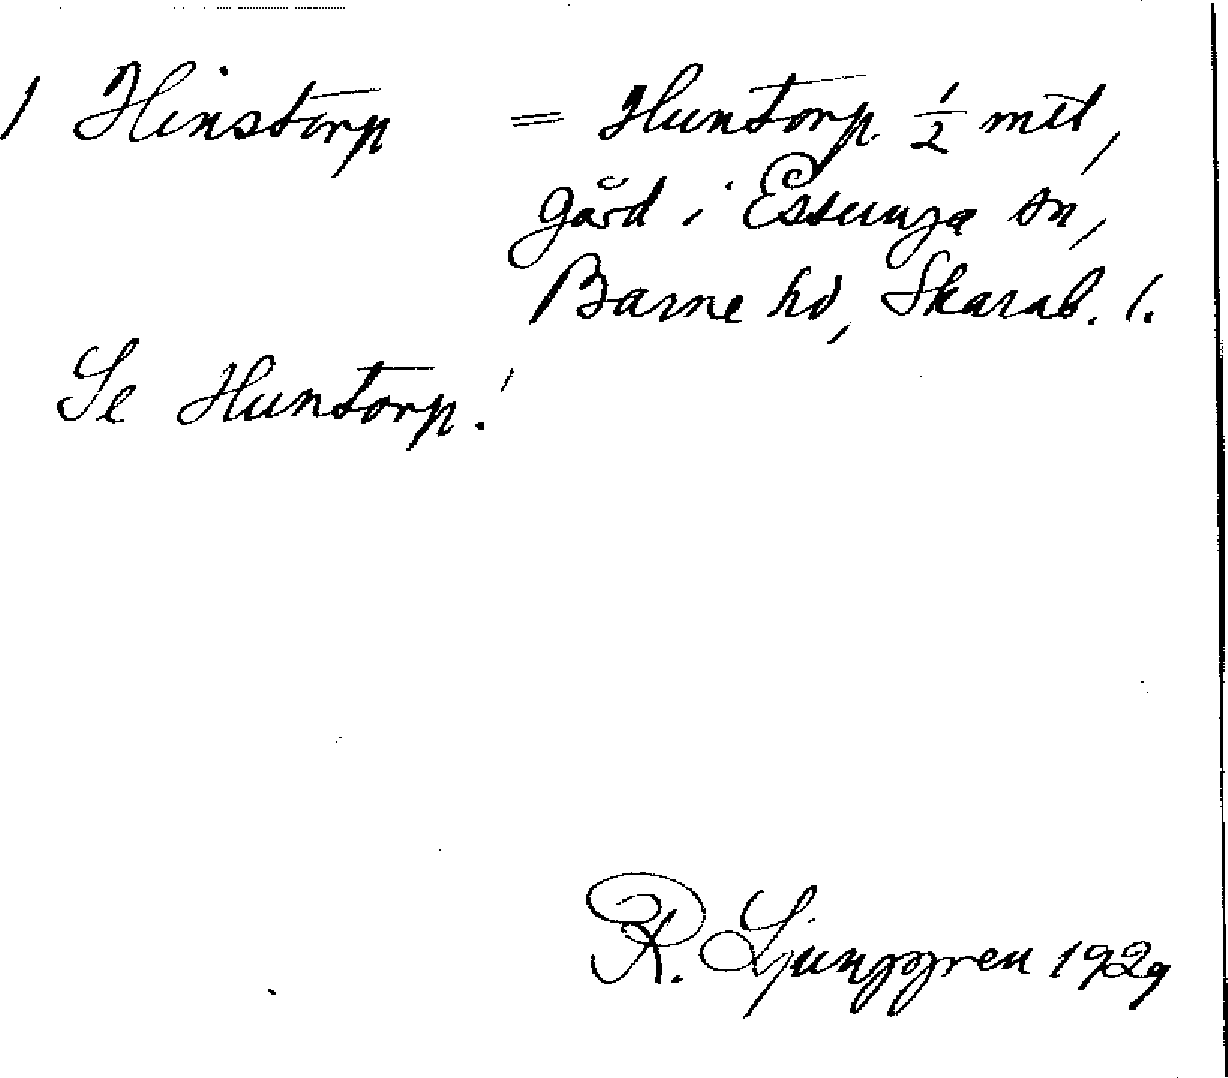 1 Hinstorp = Huntorp 1/2 mtl,
gård i Essunga sn,
Barne hd, Skarab. l.
Se Huntorp!
R. Ljunggren 1929